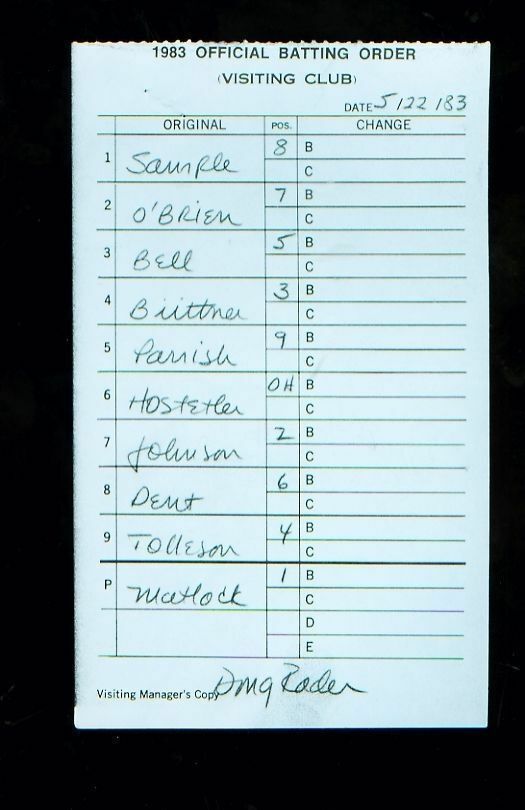 1983 OFFICIAL BATTING ORDER
(VISITING CLUB)
DATE 5/22/83
ORIGINAL POS. CHANGE
1 Sample 8 B
C
2 O'BRIEN 7 B
C
3 Bell 5 B
C
4 Biittner 3 B
C
5 Parrish 9 B
C
6 Hostetler DH B
C
7 Johnson 2 B
C
8 Dent 6 B
C
9 Tolleson 4 B
C
P Matlock 1 B
C
D
E
Visiting Manager's Copy Doug Rader